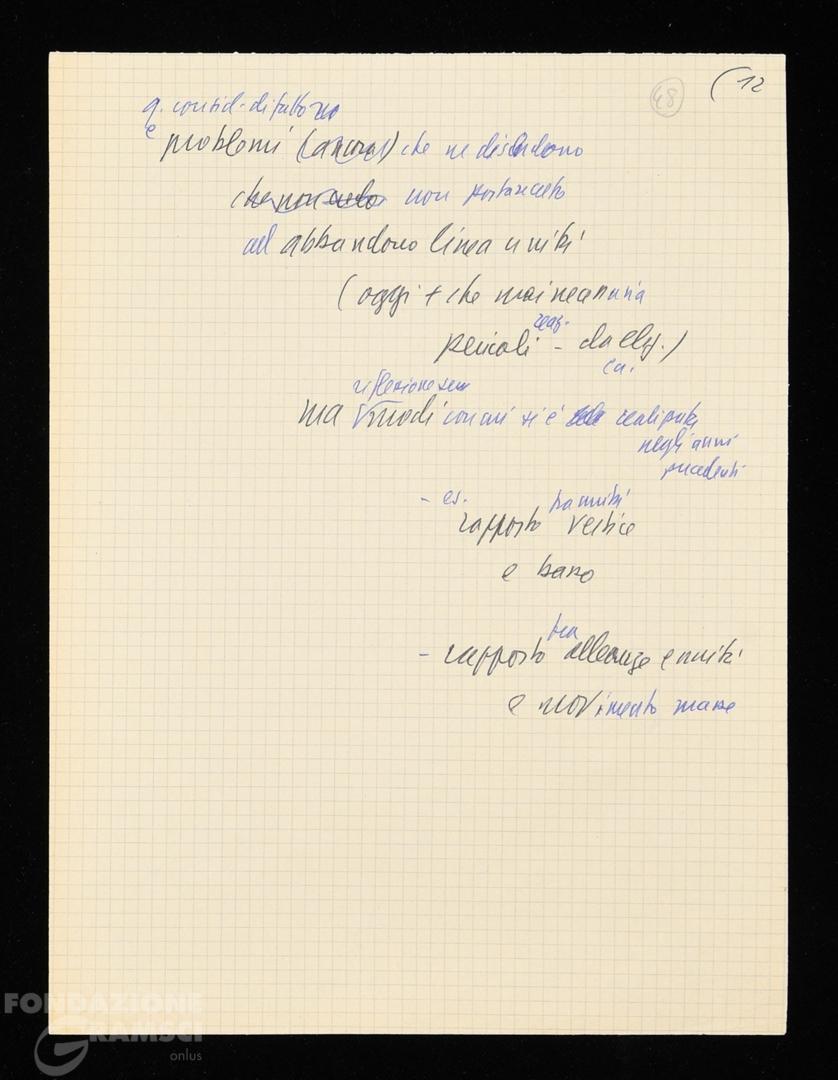 (12
48
q. consid. di fatto
e problemi (ancora) che ne discendono
che non solo non portano certo
ad abbandono linea unità
(oggi + che mai necessaria
reaz.
pericoli - da
riflessione su
ma modi con cui si è realizzata
negli anni
precedenti
- es. tra unità
rapporto vertice
e base
tra
- rapporto alleanze e unità
e movimento masse
FONDAZIONE
GRAMSCI
onlus